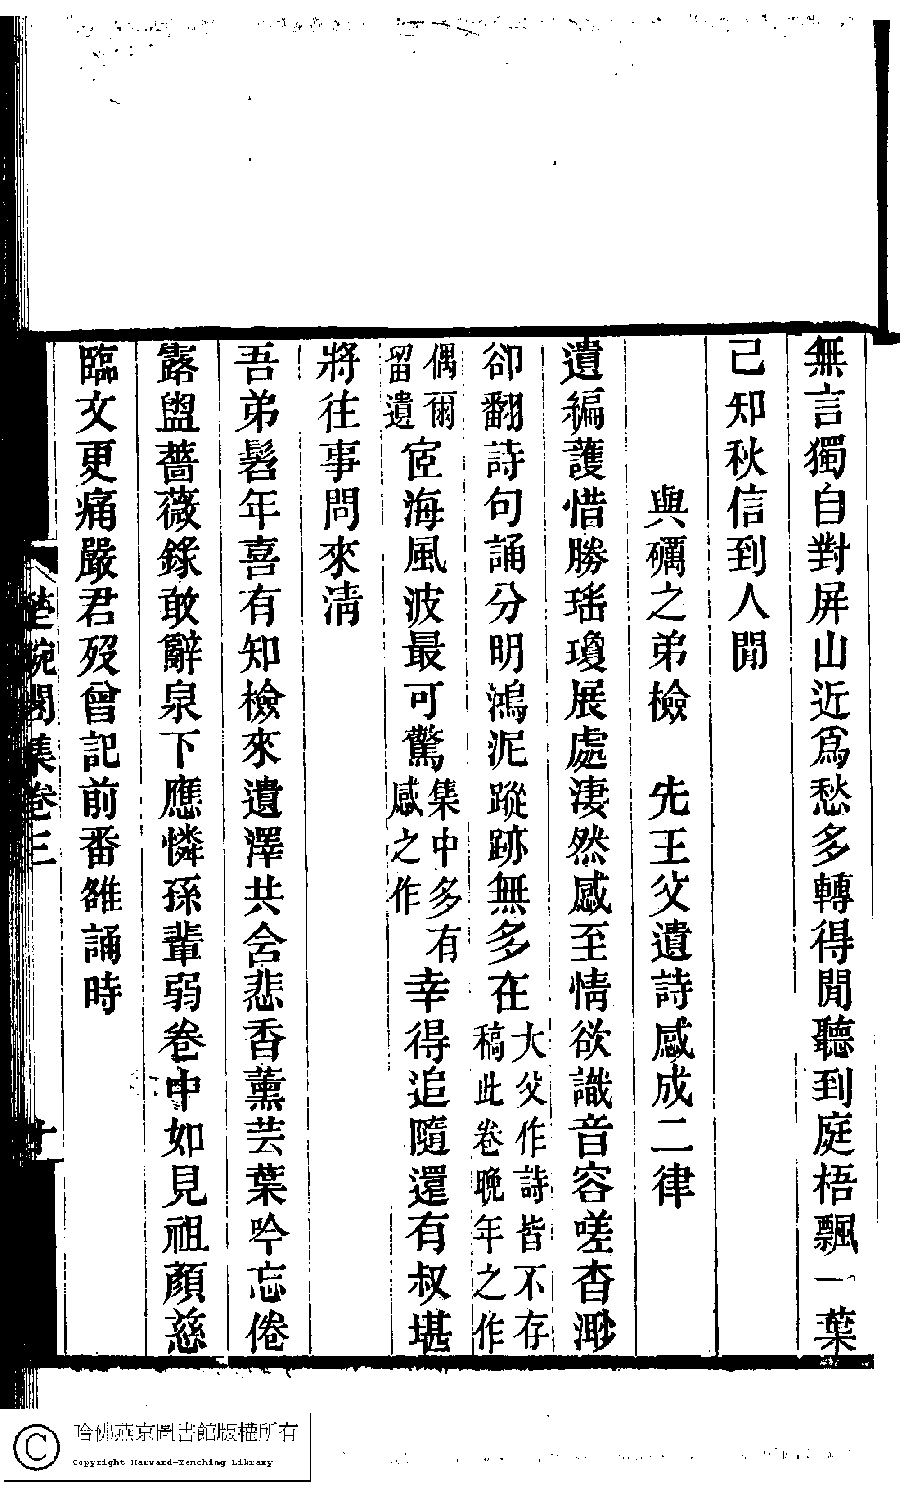 無言獨自對屏山近爲愁多轉得閒聽到庭梧飄一葉
己知秋信到人閒
與礪之弟檢　先王父遺詩感成二律
遺編護惜勝瑤瓊展處淒然感至情欲識音容嗟杳渺
卻翻詩句誦分明鴻泥蹤跡無多在大父作詩皆不存稿此卷晚年之作
偶爾留遺宦海風波最可驚集中多有感之作幸得追隨還有叔堪
將往事問來淸
吾弟髫年喜有知檢來遺澤共含悲香薰芸葉吟忘倦
露盥薔薇錄敢辭泉下應憐孫輩弱卷中如見祖顏慈
臨文更痛嚴君歿曾記前番雒誦時
琬閣集卷三
十
哈佛燕京圖書館版權所有
Copyright Harvard-Yenching Library